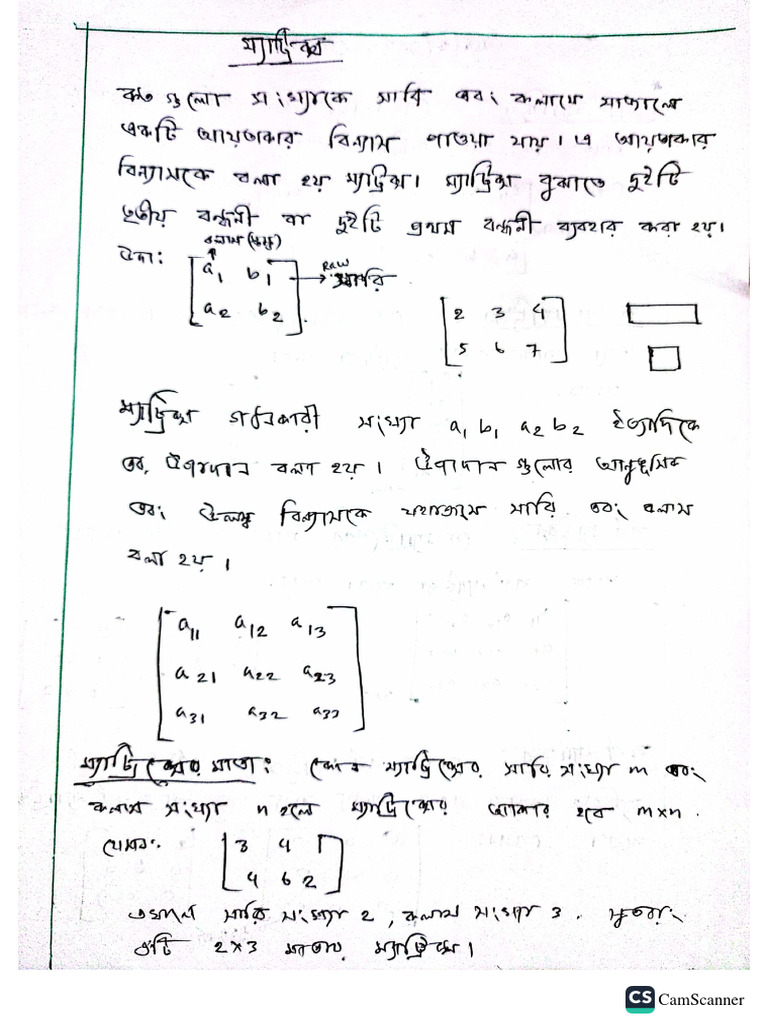 ম্যাট্রিক্স
কত গুলো সংখ্যাকে সারি এবং কলামে সাজালে
একটি আয়তাকার বিন্যাস পাওয়া যায়। এ আয়তাকার
বিন্যাসকে বলা হয় ম্যাট্রিক্স। ম্যাট্রিক্স বুঝাতে দুইটি
তৃতীয় বন্ধনী বা দুইটি প্রথম বন্ধনী ব্যবহার করা হয়।
কলাম (স্তম্ভ)
উদা: a₁ b₁ → Raw সারি
a₂ b₂
2 3 4
5 6 7
ম্যাট্রিক্স গঠনকারী সংখ্যা a₁ b₁ a₂ b₂ ইত্যাদিকে
এর উপাদান বলা হয়। উপাদান গুলোর আনুভূমিক
এবং উলম্ব বিন্যাসকে যথাক্রমে সারি এবং কলাম
বলা হয়।
a₁₁ a₁₂ a₁₃
a₂₁ a₂₂ a₂₃
a₃₁ a₃₂ a₃₃
ম্যাট্রিক্সের মাত্রা: কোন ম্যাট্রিক্সের সারি সংখ্যা m এবং
কলাম সংখ্যা n হলে ম্যাট্রিক্সের আকার হবে m×n.
যেমন: 3 4 7
4 6 2
এখানে সারি সংখ্যা 2, কলাম সংখ্যা 3. সুতরাং
এটি 2×3 মাত্রার ম্যাট্রিক্স।
CS CamScanner